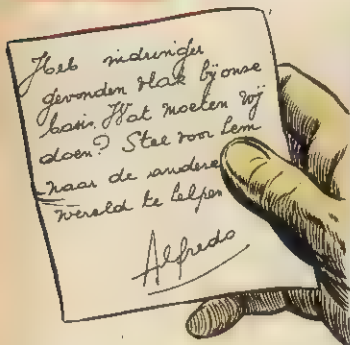 Heb indringer
gevonden vlak bij onze
basis. Wat moeten wij
doen? Stel voor hem
naar de andere
wereld te helpen
Alfredo